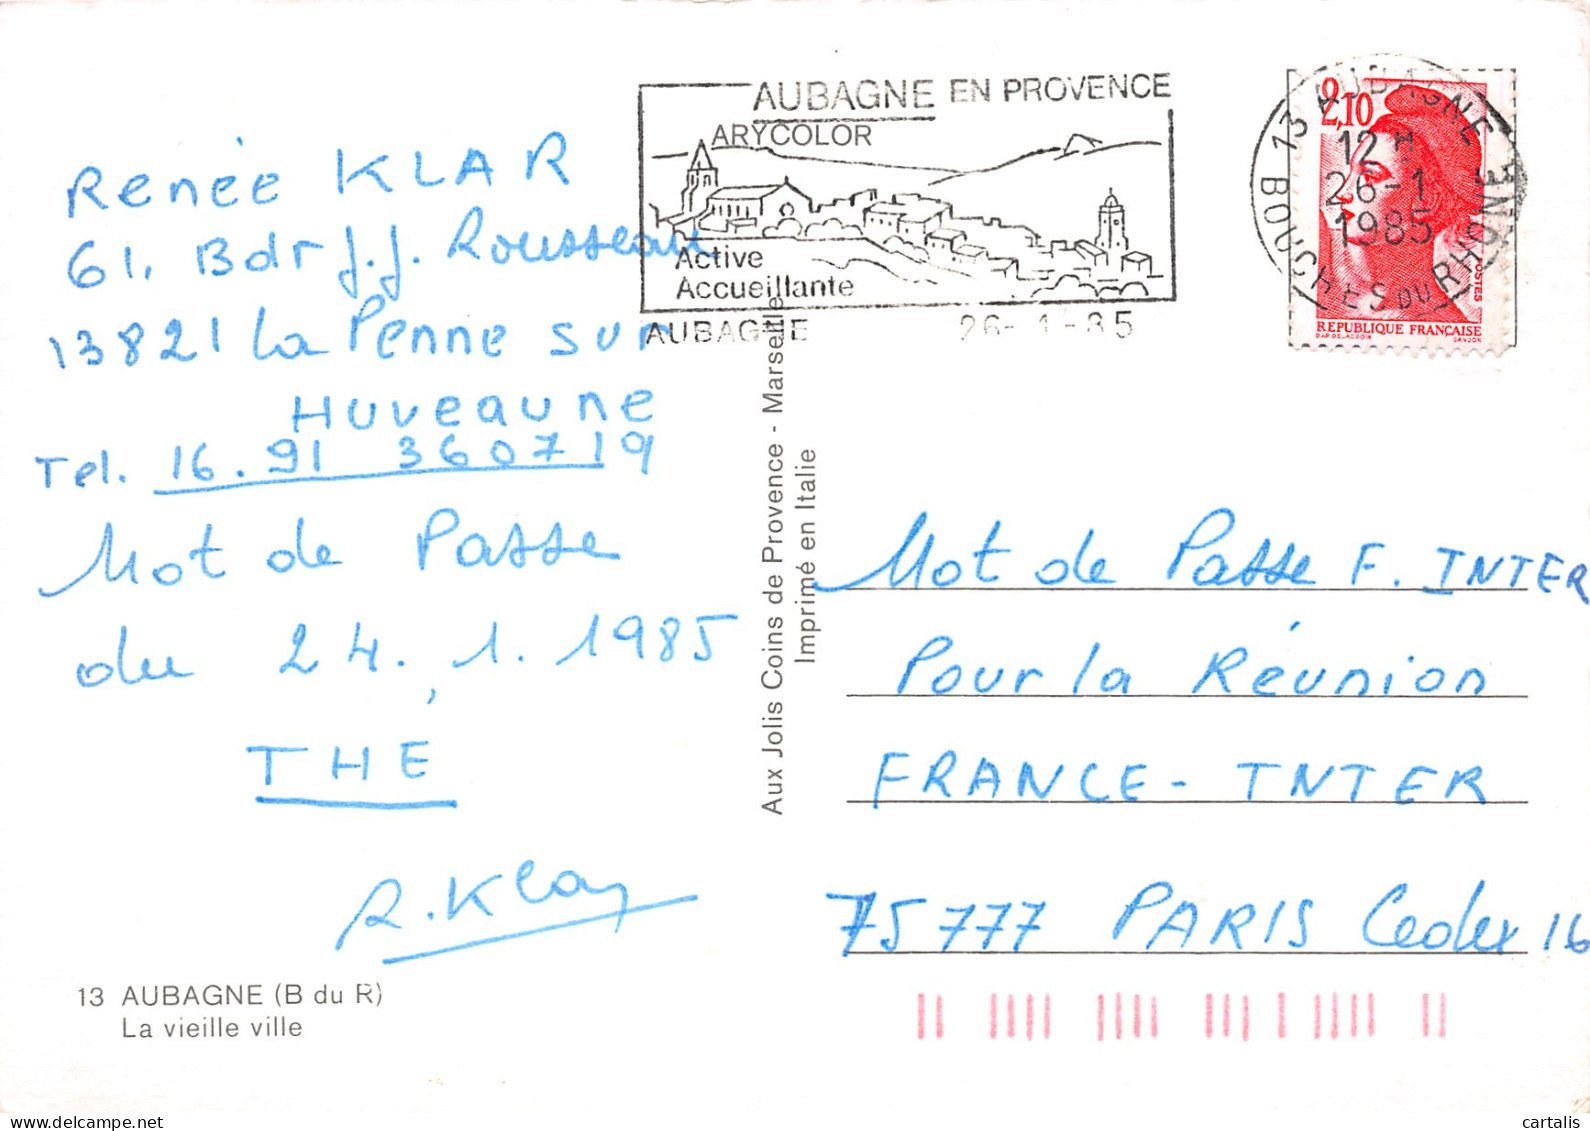 Renée KLAR
61. Bdr J.J. Rousseau
13821 La Penne sur
Huveaune
Tel. 16.91 360719
Mot de Passe
du 24.1.1985
THÉ
R. Klar
13 AUBAGNE (B du R)
La vieille ville
AUBAGNE EN PROVENCE
ARYCOLOR
Active
Accueillante
AUBAGNE 26-1-85
Aux Jolis Coins de Provence - Marseille
Imprimé en Italie
13 AUBAGNE
12 H
26-1
1985
BOUCHES DU RHONE
2,10
POSTES
REPUBLIQUE FRANÇAISE
D'AP. DELACROIX GANDON
Mot de Passe F. INTER
Pour la Réunion
FRANCE-INTER
75777 PARIS Cedex 16
cartalis.com